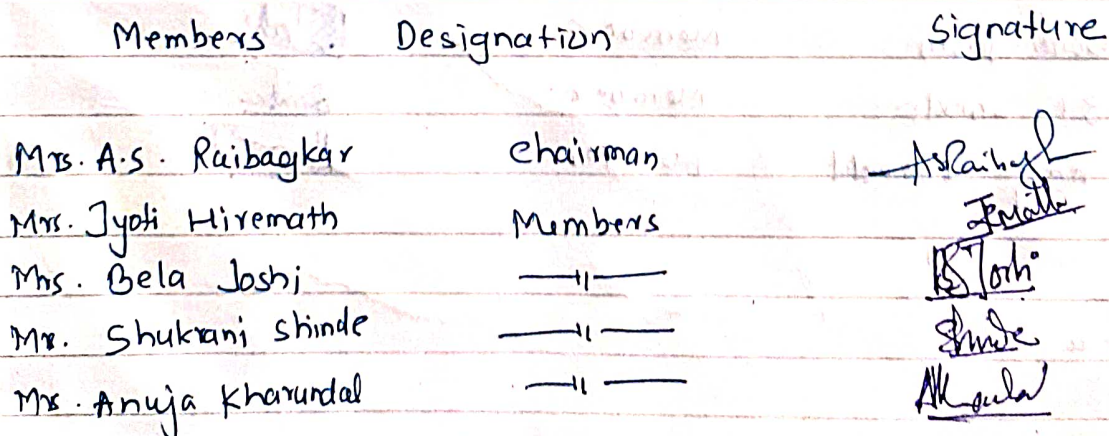 Members Designation Signature
Mrs. A.S. Raibagkar Chairman ASRaibagk
Mrs. Jyoti Hiremath Members
Mrs. Bela Joshi —॥— BSJoshi
Mr. Shukrani Shinde —॥— Shinde
Mrs. Anuja Kharundal —॥—